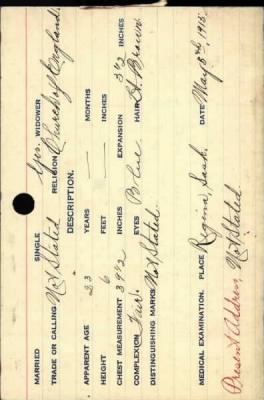 MARRIED SINGLE Yes. WIDOWER
TRADE OR CALLING Not Stated RELIGION Church of England.
DESCRIPTION.
APPARENT AGE 23 YEARS — MONTHS
HEIGHT 6 FEET — INCHES
CHEST MEASUREMENT 39½ INCHES EXPANSION 3½ INCHES
COMPLEXION Fair. EYES Blue HAIR Lt. Brown.
DISTINGUISHING MARKS Not Stated.
MEDICAL EXAMINATION. PLACE Regina, Sask. DATE May 8nd, 1918.
Present Address, Not Stated